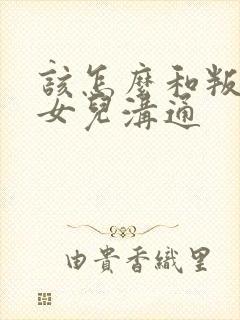 該怎麼和叛
女兒溝通
由貴香織里